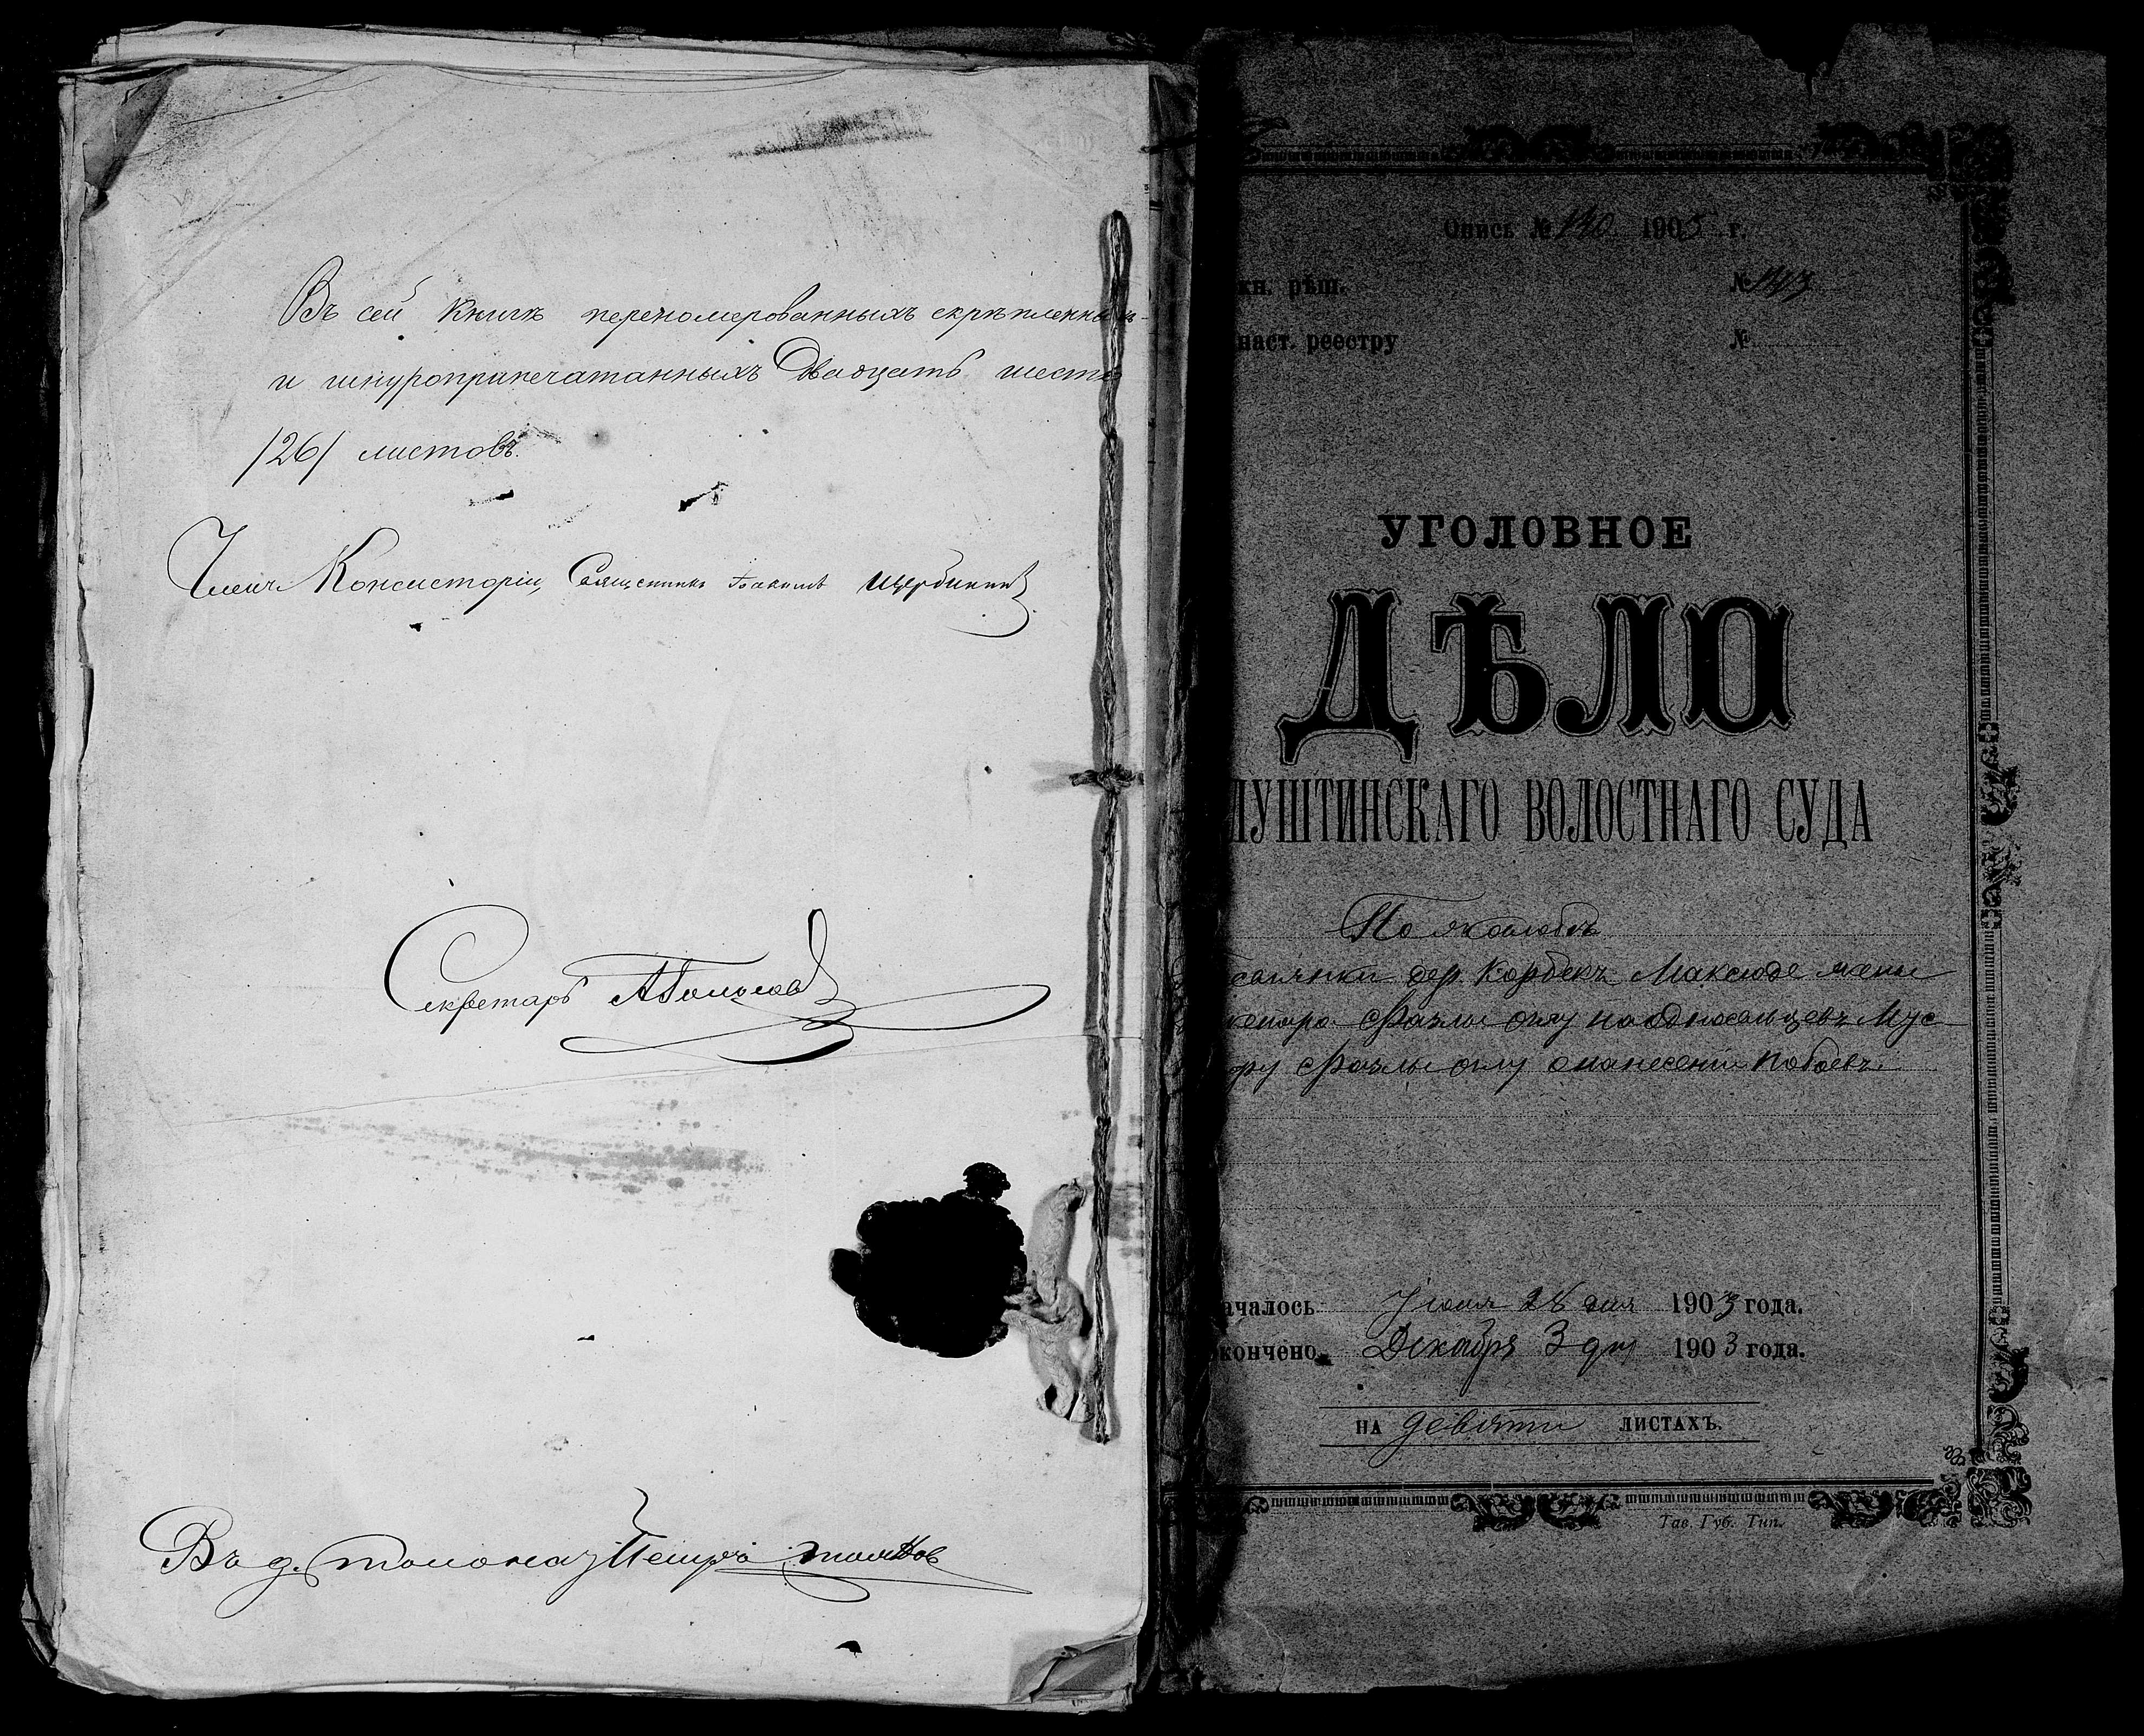 Въ сей книгѣ перенумерованныхъ скрѣпленныхъ
и шнуроприпечатанныхъ Двадцать шесть
/26/ листовъ.
Членъ Консисторіи, Священникъ Щербининъ
Секретарь
Опись № 140 1905 г.
кн. рѣш. №
наст. реестру №
УГОЛОВНОЕ
ДѢЛО
ЛУШТИНСКАГО ВОЛОСТНАГО СУДА
По жалобѣ
дер. Корбекъ Максюде жены
Фазлы оглу на односельцевъ Мус-
Фазлы оглу о нанесеніи побоевъ.
ачалось Іюля 28 дня 1903 года.
кончено Декабря 3 дня 1903 года.
НА девяти ЛИСТАХЪ.
Тав. Губ. Тип.